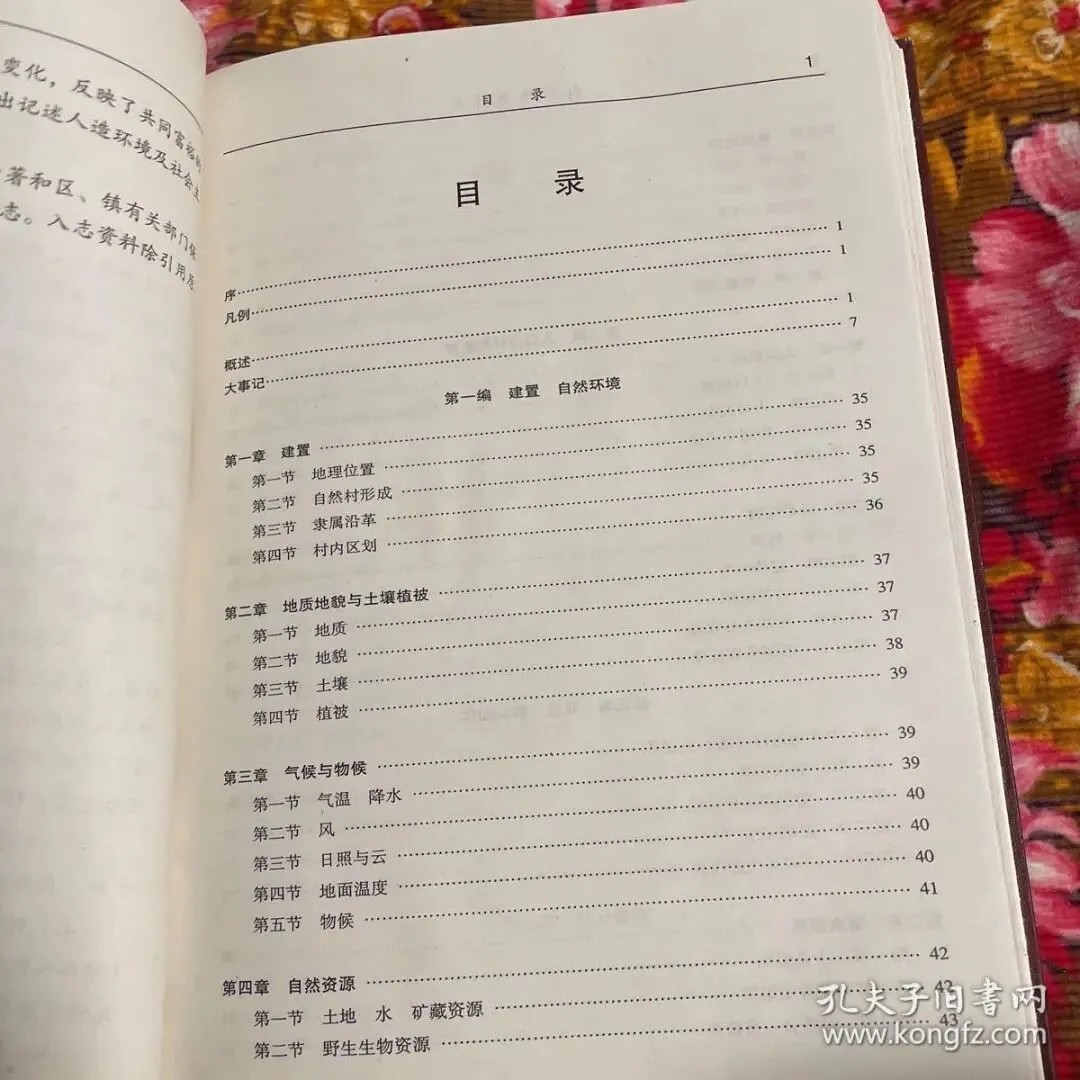 变化，反映了共同富裕的
出记述人造环境及社会主
著和区、镇有关部门保
志。入志资料除引用原
目 录 1
目 录
序 1
凡例 1
概述 1
大事记 7
第一编 建置 自然环境
第一章 建置 35
第一节 地理位置 35
第二节 自然村形成 35
第三节 隶属沿革 35
第四节 村内区划 36
第二章 地质地貌与土壤植被 37
第一节 地质 37
第二节 地貌 37
第三节 土壤 38
第四节 植被 39
第三章 气候与物候 39
第一节 气温 降水 39
第二节 风 40
第三节 日照与云 40
第四节 地面温度 40
第五节 物候 41
第四章 自然资源 42
第一节 土地 水 矿藏资源 42
第二节 野生生物资源 43
孔夫子旧书网
www.kongfz.com